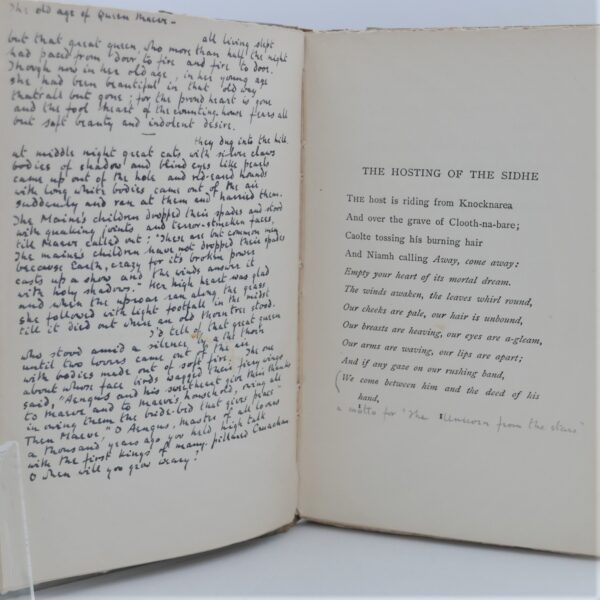 The old age of Queen Maeve -
all living slept
but that great queen, who more than half the night
had paced from door to fire and fire to door.
Though now in her old age, in her young age
she had been beautiful in that old way
thats all but gone; for the proud heart is gone
and the fool heart of the counting-house fears all
but soft beauty and indolent desire.
they dug into the hill.
at middle night great cats with silver claws
bodies of shadow and blind eyes like pearls
came up out of the hole and red-eared hounds
with long white bodies came out of the air
suddenly and ran at them and harried them.
The Maine's children dropped their spades and stood
with quaking joints and terror-stricken faces,
till Maeve called out: "These are but common men
The maine's children have not dropped their spades
because Earth, crazy for its broken power
casts up a show and the winds answer it
with holy shadows." Her high heart was glad
and when the uproar ran along the grass
she followed with light footfall in the midst
till it died out where an old thorn tree stood.
I'd tell of that great queen
who stood amid a silence by the thorn
until two lovers came out of the air
with bodies made out of soft fire. The one
about whose face birds wagged their fiery wings
said, "Aengus and his sweetheart give their thanks
to Maeve and to Maeve's household, owing all
in owing them the bride-bed that gives peace"
Then Maeve, "O Aengus, master of all lovers
a thousand years ago you held high talk
with the first kings of many-pillared Cruachan
O when will you grow weary."
THE HOSTING OF THE SIDHE
THE host is riding from Knocknarea
And over the grave of Clooth-na-bare;
Caolte tossing his burning hair
And Niamh calling Away, come away:
Empty your heart of its mortal dream.
The winds awaken, the leaves whirl round,
Our cheeks are pale, our hair is unbound,
Our breasts are heaving, our eyes are a-gleam,
Our arms are waving, our lips are apart;
And if any gaze on our rushing band,
We come between him and the deed of his
hand,
a motto for "The Unicorn from the stars"